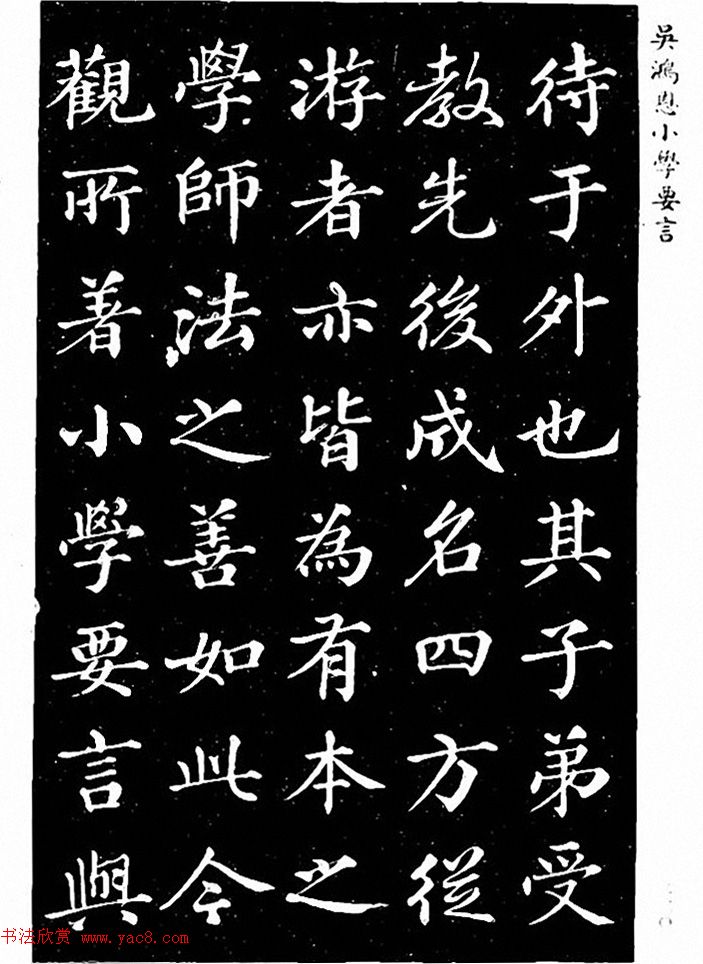 吳鴻恩小學要言
待于外也其子弟受
教先後成名四方從
游者亦皆為有本之
學師法之善如此今
觀所著小學要言與
二〇
书法欣赏 www.yac8.com